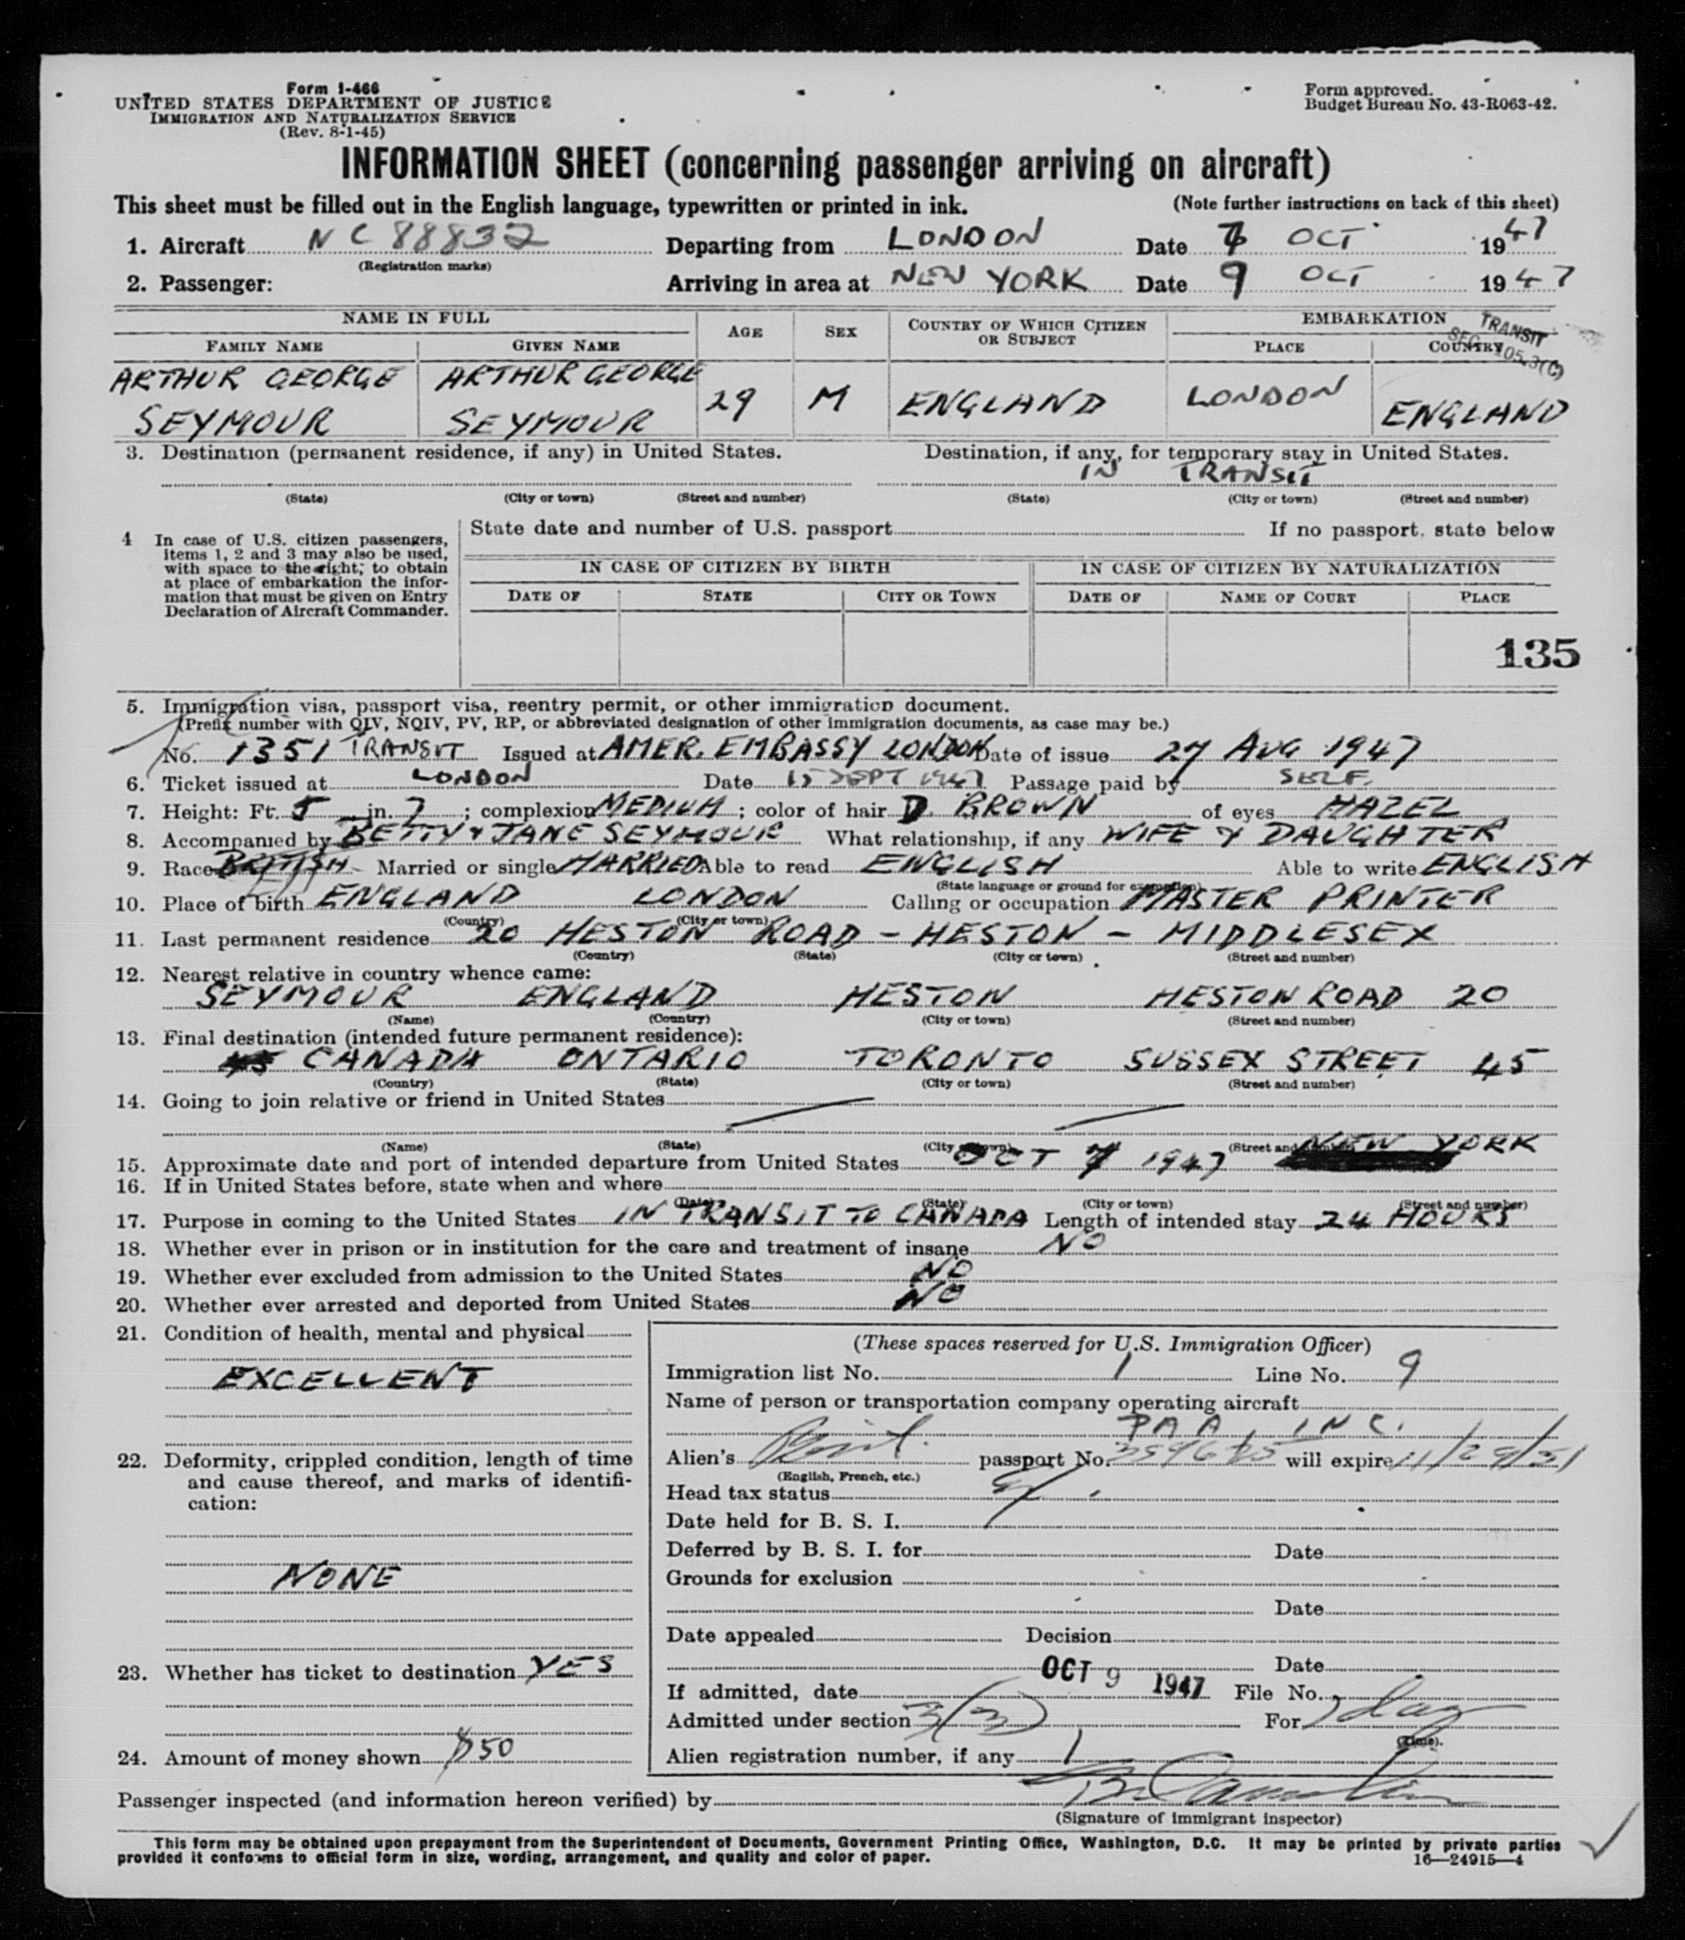 Form I-466
UNITED STATES DEPARTMENT OF JUSTICE
IMMIGRATION AND NATURALIZATION SERVICE
(Rev. 8-1-45)
Form approved.
Budget Bureau No. 43-R063-42.
INFORMATION SHEET (concerning passenger arriving on aircraft)
This sheet must be filled out in the English language, typewritten or printed in ink. (Note further instructions on back of this sheet)
1. Aircraft NC 88832 Departing from LONDON Date 7 OCT 1947
(Registration marks)
2. Passenger: Arriving in area at NEW YORK Date 9 OCT 1947
NAME IN FULL AGE SEX COUNTRY OF WHICH CITIZEN OR SUBJECT EMBARKATION
FAMILY NAME GIVEN NAME PLACE COUNTRY
TRANSIT
ARTHUR GEORGE ARTHUR GEORGE
SEYMOUR SEYMOUR 29 M ENGLAND LONDON ENGLAND
3. Destination (permanent residence, if any) in United States. Destination, if any, for temporary stay in United States.
IN TRANSIT
(State) (City or town) (Street and number) (State) (City or town) (Street and number)
4 In case of U.S. citizen passengers, items 1, 2 and 3 may also be used, with space to the right; to obtain at place of embarkation the information that must be given on Entry Declaration of Aircraft Commander.
State date and number of U.S. passport If no passport, state below
IN CASE OF CITIZEN BY BIRTH IN CASE OF CITIZEN BY NATURALIZATION
DATE OF STATE CITY OR TOWN DATE OF NAME OF COURT PLACE
135
5. Immigration visa, passport visa, reentry permit, or other immigration document.
(Prefix number with QIV, NQIV, PV, RP, or abbreviated designation of other immigration documents, as case may be.)
No. 1351 TRANSIT Issued at AMER. EMBASSY LONDON Date of issue 27 AUG 1947
6. Ticket issued at LONDON Date 15 SEPT 1947 Passage paid by SELF
7. Height: Ft. 5 in. 7; complexion MEDIUM; color of hair D. BROWN of eyes HAZEL
8. Accompanied by BETTY & JANE SEYMOUR What relationship, if any WIFE & DAUGHTER
9. Race BRITISH Married or single MARRIED Able to read ENGLISH Able to write ENGLISH
(State language or ground for exemption)
10. Place of birth ENGLAND LONDON Calling or occupation MASTER PRINTER
(Country) (City or town)
11. Last permanent residence 20 HESTON ROAD - HESTON - MIDDLESEX
(Country) (State) (City or town) (Street and number)
12. Nearest relative in country whence came:
SEYMOUR ENGLAND HESTON HESTON ROAD 20
(Name) (Country) (City or town) (Street and number)
13. Final destination (intended future permanent residence):
CANADA ONTARIO TORONTO SUSSEX STREET 45
(Country) (State) (City or town) (Street and number)
14. Going to join relative or friend in United States
(Name) (State) (City or town) (Street and number)
15. Approximate date and port of intended departure from United States OCT 7 1947 NEW YORK
16. If in United States before, state when and where
(Date) (State) (City or town) (Street and number)
17. Purpose in coming to the United States IN TRANSIT TO CANADA Length of intended stay 24 HOURS
18. Whether ever in prison or in institution for the care and treatment of insane NO
19. Whether ever excluded from admission to the United States NO
20. Whether ever arrested and deported from United States NO
21. Condition of health, mental and physical
EXCELLENT
22. Deformity, crippled condition, length of time and cause thereof, and marks of identification:
NONE
23. Whether has ticket to destination YES
24. Amount of money shown $50
(These spaces reserved for U.S. Immigration Officer)
Immigration list No. 1 Line No. 9
Name of person or transportation company operating aircraft
PAA, INC.
Alien's passport No. will expire 11/29/51
(English, French, etc.)
Head tax status
Date held for B. S. I.
Deferred by B. S. I. for Date
Grounds for exclusion
Date
Date appealed Decision
Date
If admitted, date OCT 9 1947 File No.
Admitted under section 3(3) For 1 day
(Time).
Alien registration number, if any
Passenger inspected (and information hereon verified) by
(Signature of immigrant inspector)
This form may be obtained upon prepayment from the Superintendent of Documents, Government Printing Office, Washington, D.C. It may be printed by private parties
provided it conforms to official form in size, wording, arrangement, and quality and color of paper. 16—24915-4